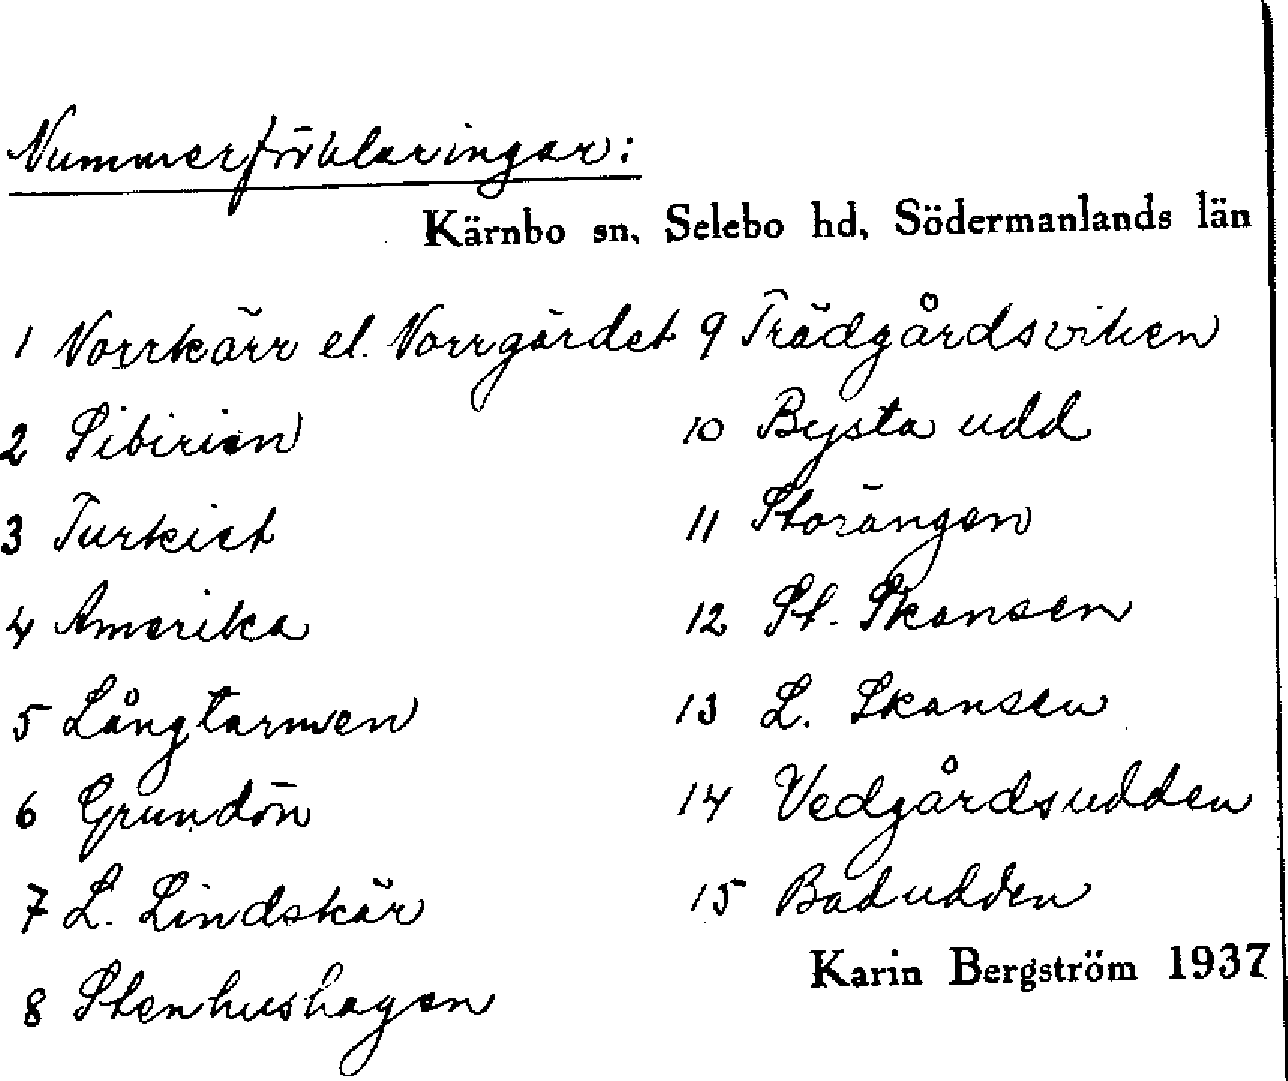 Nummerförklaringar:
Kärnbo sn, Selebo hd, Södermanlands län
1 Norrkärr el. Norrgärdet
2 Sibirien
3 Turkiet
4 Amerika
5 Långtarmen
6 Grundön
7 L. Lindskär
8 Stenhushagen
9 Trädgårdsviken
10 Bysta udd
11 Storängen
12 St. Skansen
13 L. Skansen
14 Vedgårdsudden
15 Badudden
Karin Bergström 1937